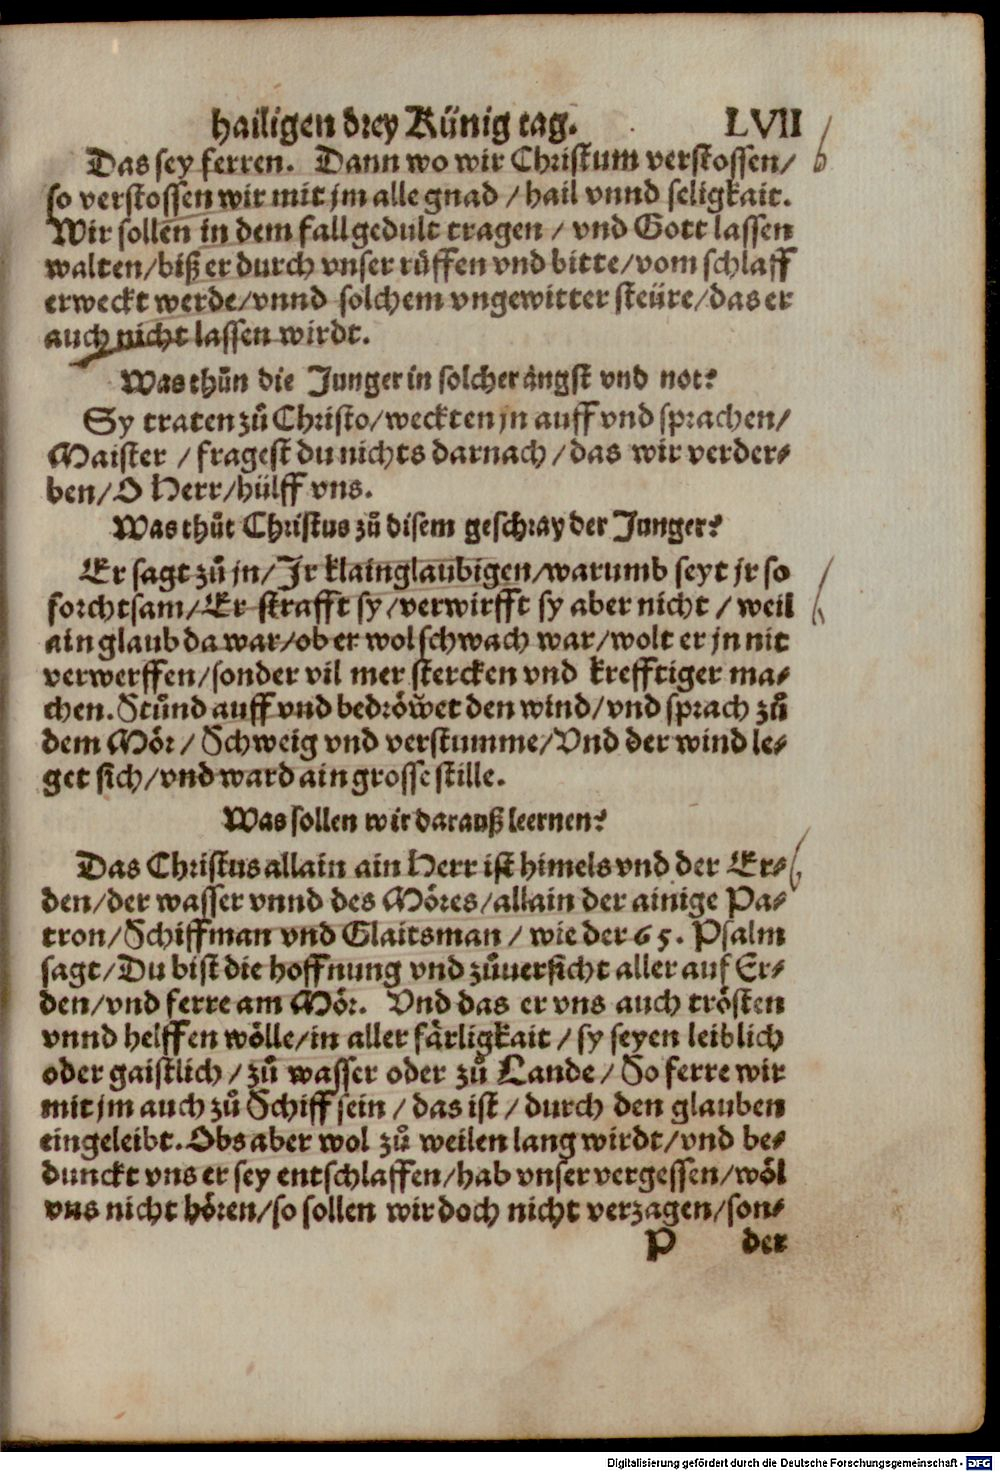 hailigen drey Künig tag. LVII
Das sey ferren. Dann wo wir Christum verstossen/
so verstossen wir mit jm alle gnad / hail vnnd seligkait.
Wir sollen in dem fall gedult tragen / vnd Gott lassen
walten/biß er durch vnser rüffen vnd bitte/vom schlaff
erweckt werde/vnnd solchem vngewitter steüre/das er
auch nicht lassen wirdt.
Was thůn die Junger in solcher ångst vnd not?
Sy traten zů Christo/weckten jn auff vnd sprachen/
Maister / fragest du nichts darnach / das wir verder-
ben/O Herr/hülff vns.
Was thůt Christus zů disem geschray der Junger?
Er sagt zů jn/Jr klainglaubigen/warumb seyt jr so
forchtsam/Er strafft sy/verwirfft sy aber nicht / weil
ain glaub da war/ob er wol schwach war/wolt er jn nit
verwerffen/sonder vil mer stercken vnd krefftiger ma-
chen. Stůnd auff vnd bedröwet den wind/vnd sprach zů
dem Mör / Schweig vnd verstumme/Vnd der wind le-
get sich/vnd ward ain grosse stille.
Was sollen wir darauß leernen?
Das Christus allain ain Herr ist himels vnd der Er-
den/der wasser vnnd des Möres/allain der ainige Pa-
tron/Schiffman vnd Glaitsman / wie der 65. Psalm
sagt/Du bist die hoffnung vnd zůuersicht aller auf Er-
den/vnd ferre am Mör. Vnd das er vns auch trösten
vnnd helffen wölle/in aller fårligkait / sy seyen leiblich
oder gaistlich / zů wasser oder zů Lande / So ferre wir
mit jm auch zů Schiff sein / das ist / durch den glauben
eingeleibt. Obs aber wol zů weilen lang wirdt/vnd be-
dunckt vns er sey entschlaffen/hab vnser vergessen/wöl
vns nicht hören/so sollen wir doch nicht verzagen/son-
P der
Digitalisierung gefördert durch die Deutsche Forschungsgemeinschaft - DFG